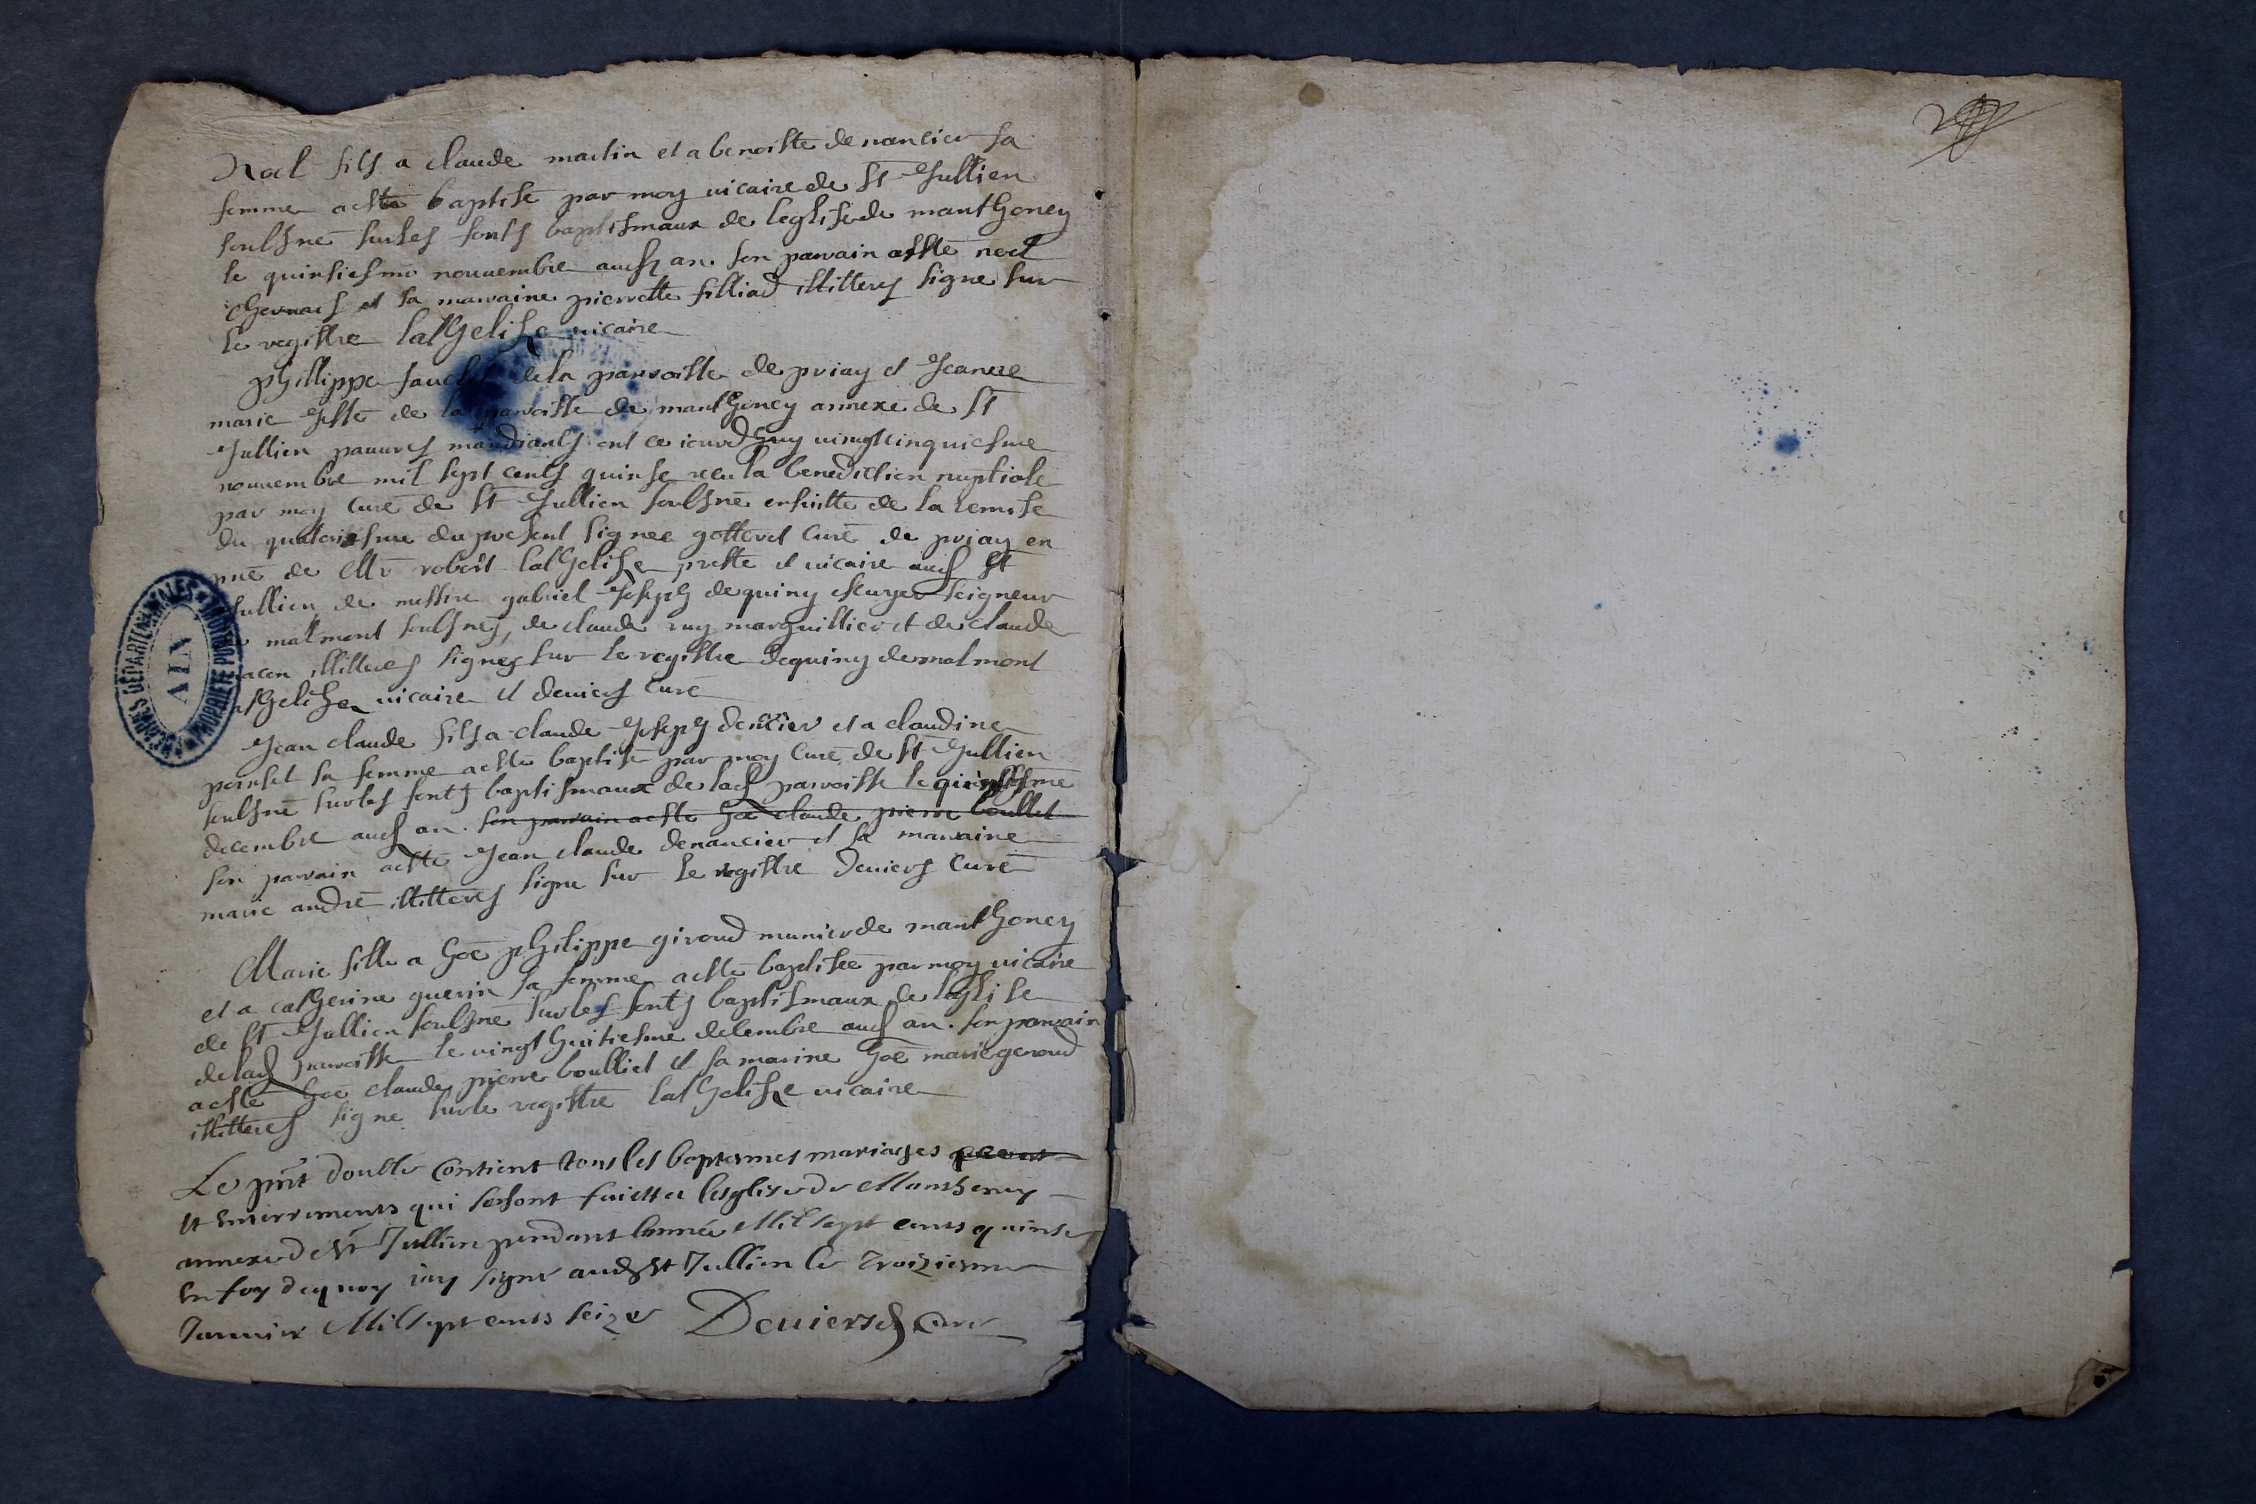 Noel fils a claude martin et a benoiste de nancier sa
femme a esté baptisé par moy uicaire de St Jullien
soubsné sur les fonts baptismaux de leglise de manthoney
le quinsiesme nouuembre aud an. son parrain a esté noel
chernacs et sa marraine pierrette filliad illitterés signe sur
le registre lathelise uicaire
phillippe de la parroisse de priay et Jeanne
marie de la parroisse de manthoney annexe de St
Jullien pauures mandiants ont ce iourdhuy uingtcinquiesme
nouuembre mil sept cents quinse receu la benediction nuptiale
par moy curé de St Jullien soubsné ensuitte de la remise
du quatorsiesme du present signee gotteret curé de priay en
pnce de Mre robert lathelise prestre et uicaire aud St
Jullien de messire gabriel Joseph dequiny escuyer seigneur
malmont soubsnes, de claude ruy marguillier et de claude
illitteres signes sur le registre dequiny de malmont
uicaire et deuiers curé
Jean claude fils a claude Joseph dencier et a claudine
poinset sa femme a esté baptisé par moy curé de St Jullien
soubsné sur les fonts baptismaux de lad parroisse le
decembre aud an. son parrain a esté hoe claude pierre boullet
son parrain a esté Jean claude denancier et sa marraine
marie andré illitterés signe sur le registre Deuiers curé
Marie fille a hoe philippe giroud munier de manthoney
et a catherine guerin sa femme a esté baptisée par moy uicaire
de St Jullien soubsné sur les fonts baptismaux de leglise
de lad parroisse le uingt huitiesme decembre aud an. son parrain
a esté hoe claude pierre boulliet et sa marine hoe marie geroud
illitterés signe sur le registre lathelise uicaire
Le pnt double contient tous les baptesmes mariages
et enterrements qui se sont faicts a lesglise de Manthoney
annexe de St Jullien pendant lannée Mil sept cents quinse
En foy de quoy jay signe aud St Jullien le troiziesme
Januier Mil sept cents seize Deuiers Curé
ARCHIVES DÉPARTEMENTALES
AIN
PROPRIÉTÉ PUBLIQUE